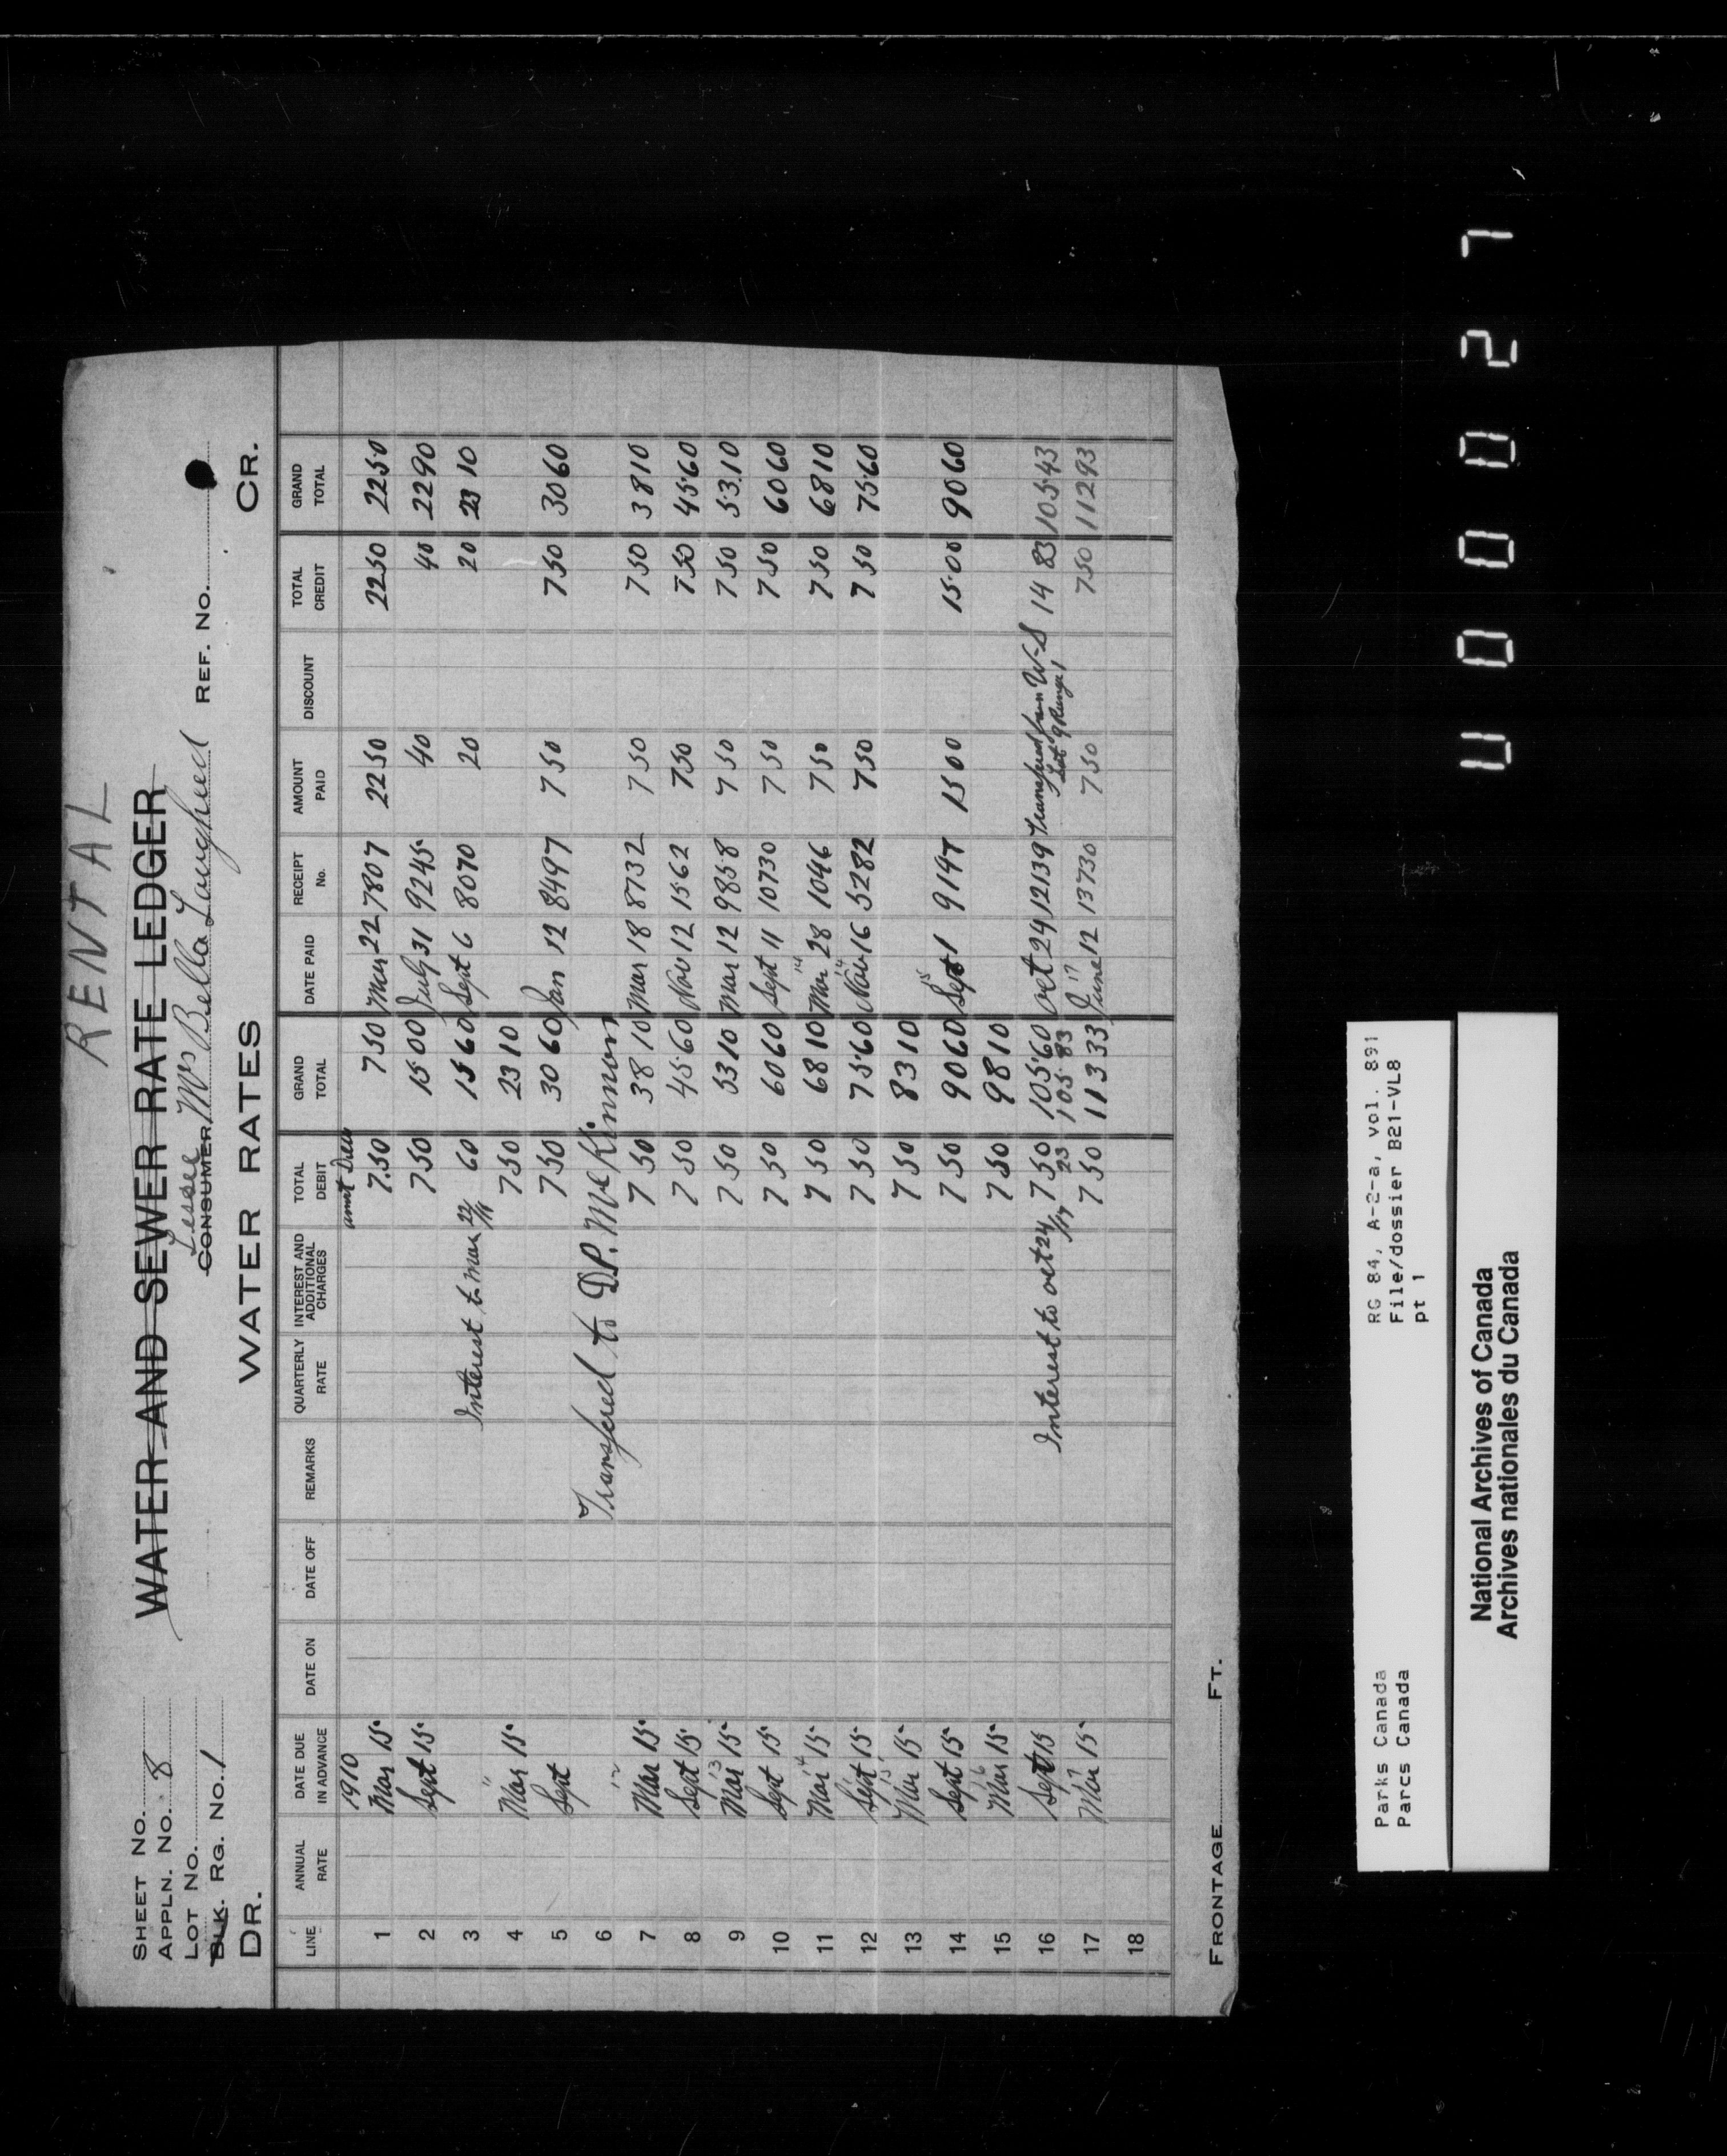 RENTAL
SHEET No.
WATER AND SEWER RATE LEDGER
APPLN. No. 8
Lessee
LOT No.
CONSUMER Mrs Bella Lougheed REF. No.
BLK. RG. No. 1
DR. WATER RATES CR.
LINE ANNUAL RATE DATE DUE IN ADVANCE DATE ON DATE OFF REMARKS QUARTERLY RATE INTEREST AND ADDITIONAL CHARGES TOTAL DEBIT GRAND TOTAL DATE PAID RECEIPT No. AMOUNT PAID DISCOUNT TOTAL CREDIT GRAND TOTAL
1910 amt Due
1 Mar 15 7.50 7 50 Mar 22 7807 22 50 22 50 22 50
2 Sept 15 7 50 15 00 July 31 9245 40 40 22 90
3 Interest to Mar 22/11 60 15 60 Sept 6 8070 20 20 23 10
11
4 Mar 15 7 50 23 10
5 Sept 7 50 30 60 Jan 12 8497 7 50 7 50 30 60
6 Transfered to D.P. McKinnon
12
7 Mar 15 7 50 38 10 Mar 18 8732 7 50 7 50 38 10
8 Sept 15 7 50 45 60 Nov 12 1562 7 50 7 50 45 60
13
9 Mar 15 7 50 53 10 Mar 12 9858 7 50 7 50 53 10
10 Sept 15 7 50 60 60 Sept 11 10730 7 50 7 50 60 60
14 14
11 Mar 15 7 50 68 10 Mar 28 1046 7 50 7 50 68 10
14
12 Sept 15 7 50 75 60 Nov 16 5282 7 50 7 50 75 60
15
13 Mar 15 7 50 83 10
15
14 Sept 15 7 50 90 60 Sept 1 9147 15 00 15 00 90 60
16
15 Mar 15 7 50 98 10
16 Sept 15 7 50 105 60 Oct 24 12139 Transfered from W-S 14 83 105 43
Interest to Oct 24/17 23 105 83 Lot 9 Range 1
17 17
17 Mar 15 7 50 113 33 June 12 13730 7 50 7 50 112 93
18
FRONTAGE FT.
Parks Canada RG 84, A-2-a, vol. 891
Parcs Canada File/dossier B21-VL8
pt 1
National Archives of Canada
Archives nationales du Canada
U 0 0 0 2 7